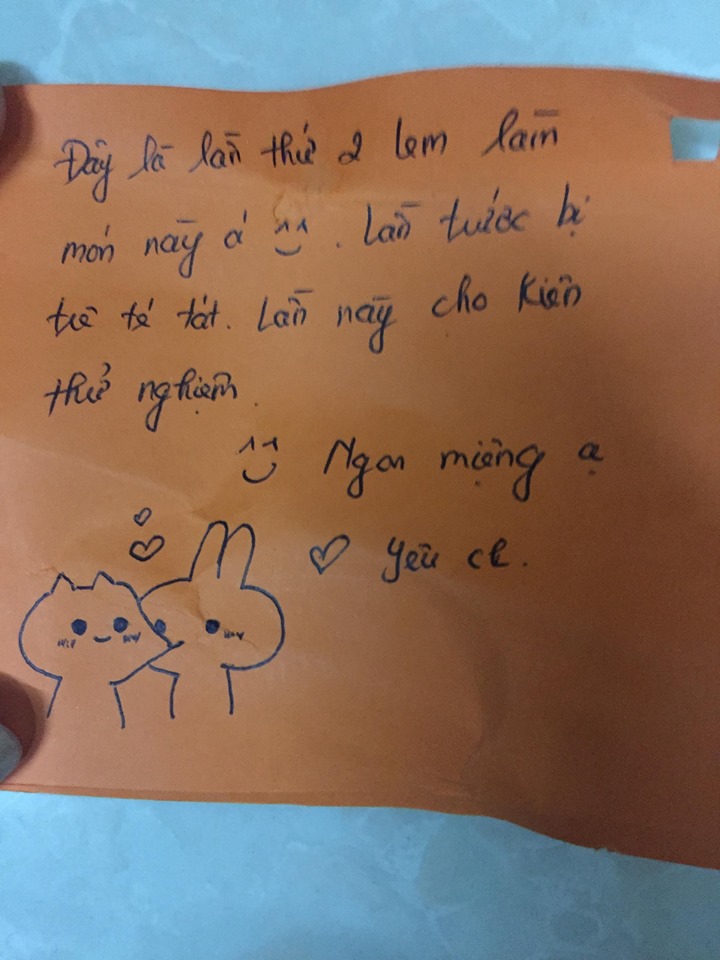 Đây là lần thứ 2 lem làm
món này á ^^. Lần tước bị
trê té tát. Lần này cho Kiên
thử nghiệm.
^^ Ngon miệng ạ
♡ yêu ck.